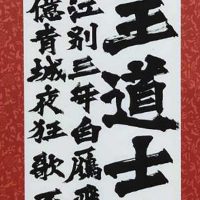 王道士
江别三年白雁飛
億青城夜狂歌